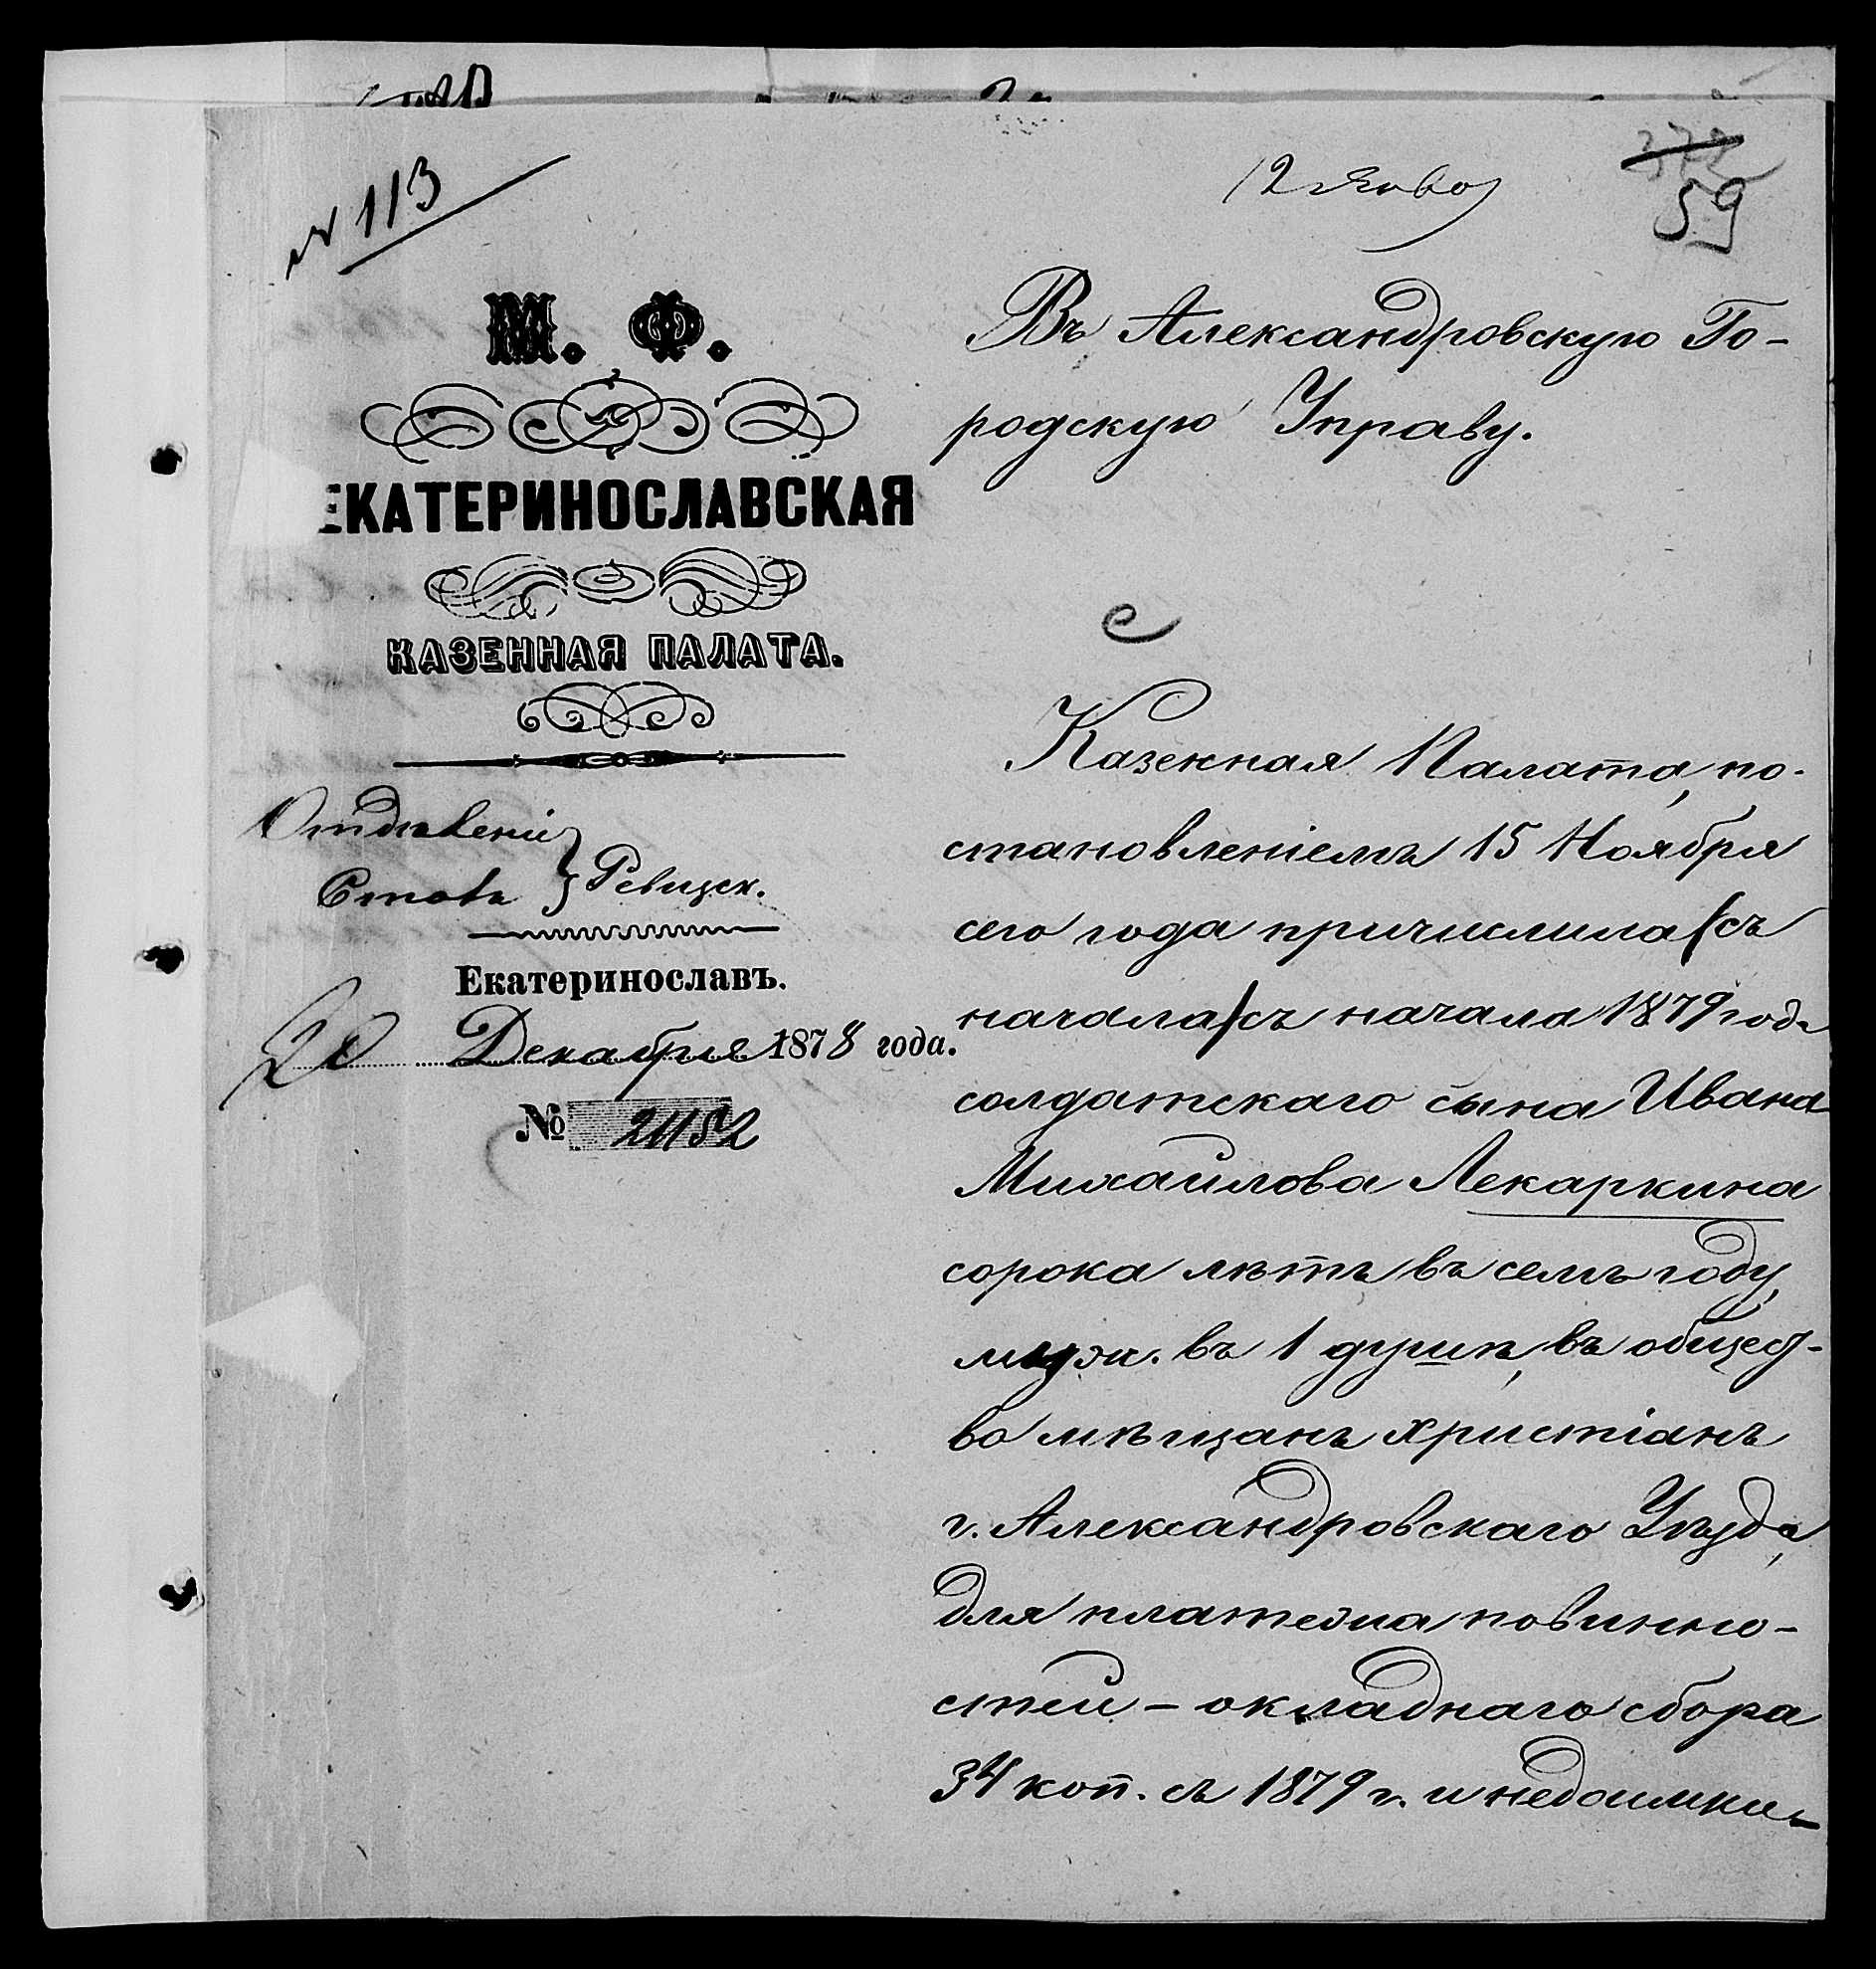 № 113
12 Янво
372
59
М. Ф.
ЕКАТЕРИНОСЛАВСКАЯ
КАЗЕННАЯ ПАЛАТА.
Отдѣленіе
Столъ } Ревизск.
Екатеринославъ.
20 Декабря 1878 года.
№ 21152
Въ Александровскую Го-
родскую Управу.
Казенная Палата, по-
становленіемъ 15 Ноября
сего года причислила (съ
начала) съ начала 1879 года
солдатскаго сына Ивана
Михайлова Лекаркина
сорока лѣтъ въ семъ году,
муж. въ 1 душѣ, въ общест-
во мѣщанъ христіанъ
г. Александровскаго Уѣзда,
для платежа повинно-
стей - окладнаго сбора
34 коп. съ 1879 г. и недоимки